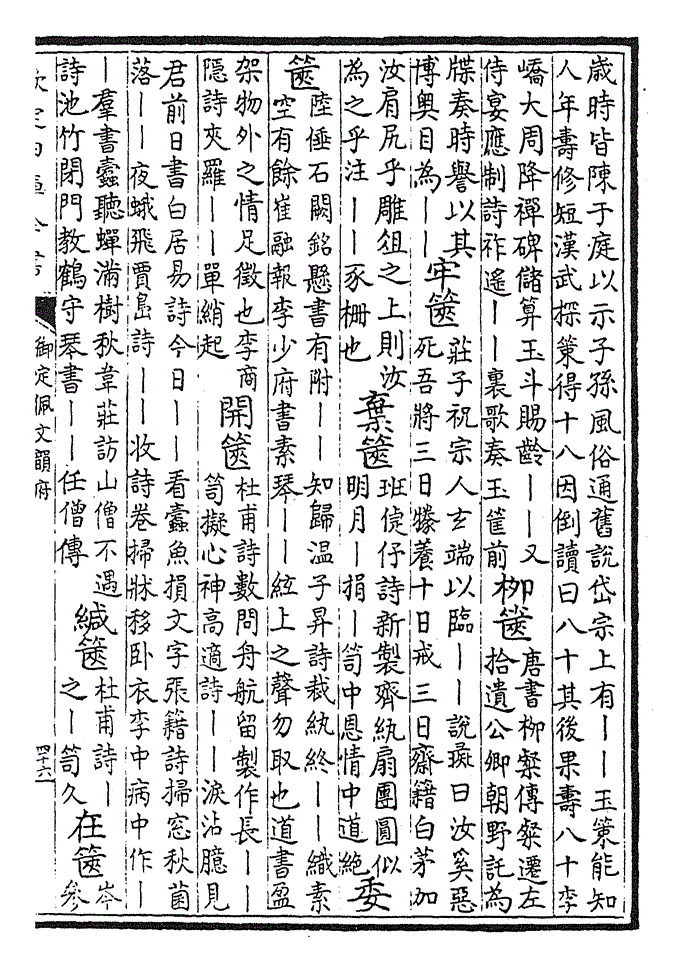 歲時皆陳于庭以示子孫風俗通舊說岱宗上有――玉策能知
人年壽修短漢武探策得十八因倒讀曰八十其後果壽八十李
嶠大周降禪碑儲算玉斗賜齡――又
侍宴應制詩祚遙――裏歌奏玉筐前
柳篋
唐書柳璨傳璨遷左
拾遺公卿朝野託為
牋奏時譽以其
博奧目為――
牢篋
莊子祝宗人玄端以臨――說彘曰汝奚惡
死吾將三日牓養十日戒三日齋籍白茅加
汝肩尻乎雕俎之上則汝
為之乎注――豕柵也
棄篋
班倢伃詩新製齊紈扇團圓似
明月―捐―笥中恩情中道絕
委
篋
陸倕石闕銘懸書有附――知歸温子昇詩裁紈終――織素
空有餘崔融報李少府書素琴――絃上之聲勿取也道書盈
架物外之情足徵也李商
隱詩夾羅――單綃起
開篋
杜甫詩數問舟航留製作長――
笥擬心神高適詩――淚沾臆見
君前日書白居易詩今日――看蠹魚損文字張籍詩掃窓秋菌
落――夜蛾飛賈島詩――收詩卷掃牀移卧衣李中病中作―
―羣書蠹聽蟬滿樹秋韋莊訪山僧不遇
詩池竹閉門教鶴守琴書――任僧傳
緘篋
杜甫詩―
之―笥久
在篋
岑
參
欽定四庫全書
御定佩文韻府
四十六